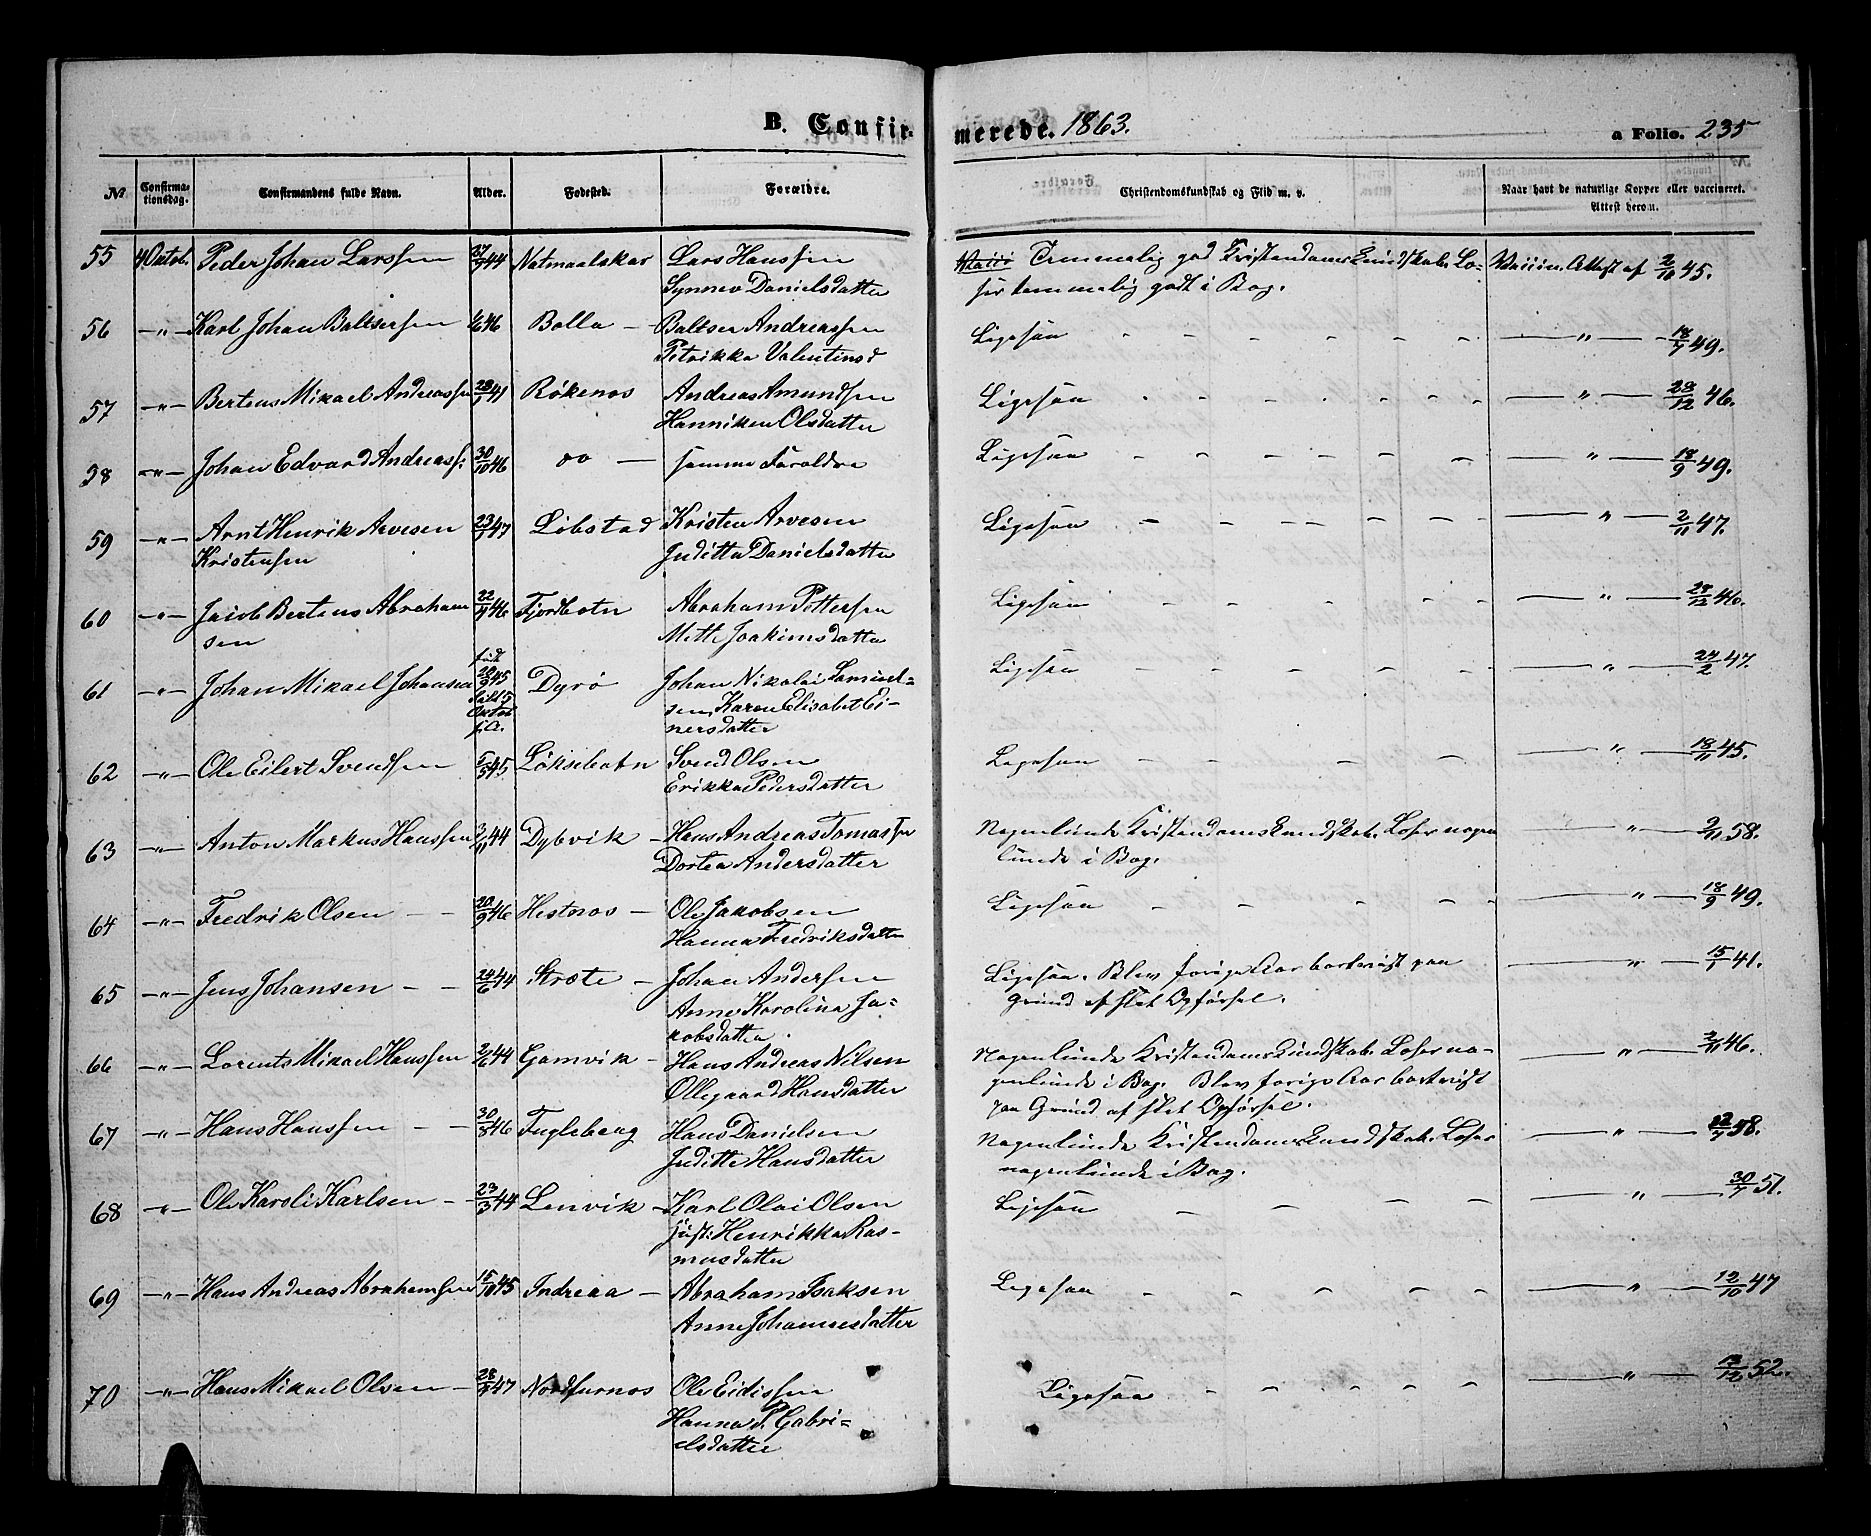 B. Confirmerede. 1863.
a Folio. 235
№ Confirmationsdag. Confirmandens fulde Navn. Alder. Fødested. Forældre. Christendomskundskab og Flid m. v. Naar havt de naturlige Kopper eller vaccineret. Attest herom.
55 4 Octob. Peder Johan Larssen 27/9 44 Natmaalskar Lars Hanssen Temmelig god Kristendomskundskab. Læ- Vaccin. Attest af 2/10 45.
Synnev Danielsdatter ser temmelig godt i Bog.
56 —"— Karl Johan Baltsersen 46 Balla — Baltser Andreassen Ligesaa — " — 18/7 49.
Petrikka Valentinsd
57 —"— Berteus Mikael Andreassen 28/1 41 Røkenes Andreas Amundsen Ligesaa — " — 28/12 46.
Hanniken Olsdatter
58 —"— Johan Edvard Andreass. 30/10 46 do — samme Forældre Ligesaa — " — 18/9 49.
59 —"— Arnt Henrik Arvesen 23/7 47 Løbstad Kristen Arvesen Ligesaa — " — 2/11 47.
Kristensen Juditta Danielsdatter
60 —"— Jacob Berteus Abraham 22/4 46 Fjordbotn Abraham Pettersen Ligesaa — " — 28/12 46.
sen Mette Joakimsdatter
61 —"— Johan Mikael Johansen født 28/9 45 Dyrø Johan Nikolai Samuel= Ligesaa — " — 24/2 47.
sen, Karen Elisabet Ei-
nersdatter
62 —"— Ole Eilert Svendsen 5/5 45 Løksebotn Svend Olsen Ligesaa — " — 18/11 45.
Erikka Pedersdatter
63 —"— Anton Markus Hanssen 2/11 44 Dybvik — Hans Andreas Tomassen Nogenlunde Kristendomskundskab. Læser nogen — " — 2/11 58.
Dortea Andersdatter lunde i Bog.
64 —"— Fredrik Olsen — — 20/9 46 Hestnes — Ole Jakobsen Ligesaa — " — 18/9 49.
Hanna Fredriksdatter
65 —"— Jens Johansen — — 24/6 44 Stræte — Johan Andersen Ligesaa. Blev forige Aar bortvist paa — " — 15/1 41.
Anne Karolina Ja= Grund af slet Opførsel.
kobsdatter
66 —"— Lorents Mikael Hanssen 2/6 44 Gamvik — Hans Andreas Nilsen Nogenlunde Kristendomskundskab. Læser no- — " — 2/11 46.
Ollegaard Hansdatter genlunde i Bog. Blev forige Aar bortvist
paa Grund af slet Opførsel.
67 —"— Hans Hanssen — — 30/8 46 Fugleberg Hans Danielsen Nogenlunde Kristendomskundskab. Læser — " — 22/7 58.
Juditte Hansdatter nogenlunde i Bog.
68 —"— Ole Karoli Karlsen — 23/3 44 Lenvik — Karl Olai Olsen Ligesaa — " — 30/7 51.
Henrikka Ras-
musdatter
69 —"— Hans Andreas Abrahamsen 15/10 45 Indreaa — Abraham Isaksen Ligesaa — " — 12/10 47
Anne Johannesdatter
70 —"— Hans Mikael Olsen — 28/8 47 Nordfurnes Ole Eidissen Ligesaa — " — 13/12 52.
Hanna P. Gabri=
elsdatter